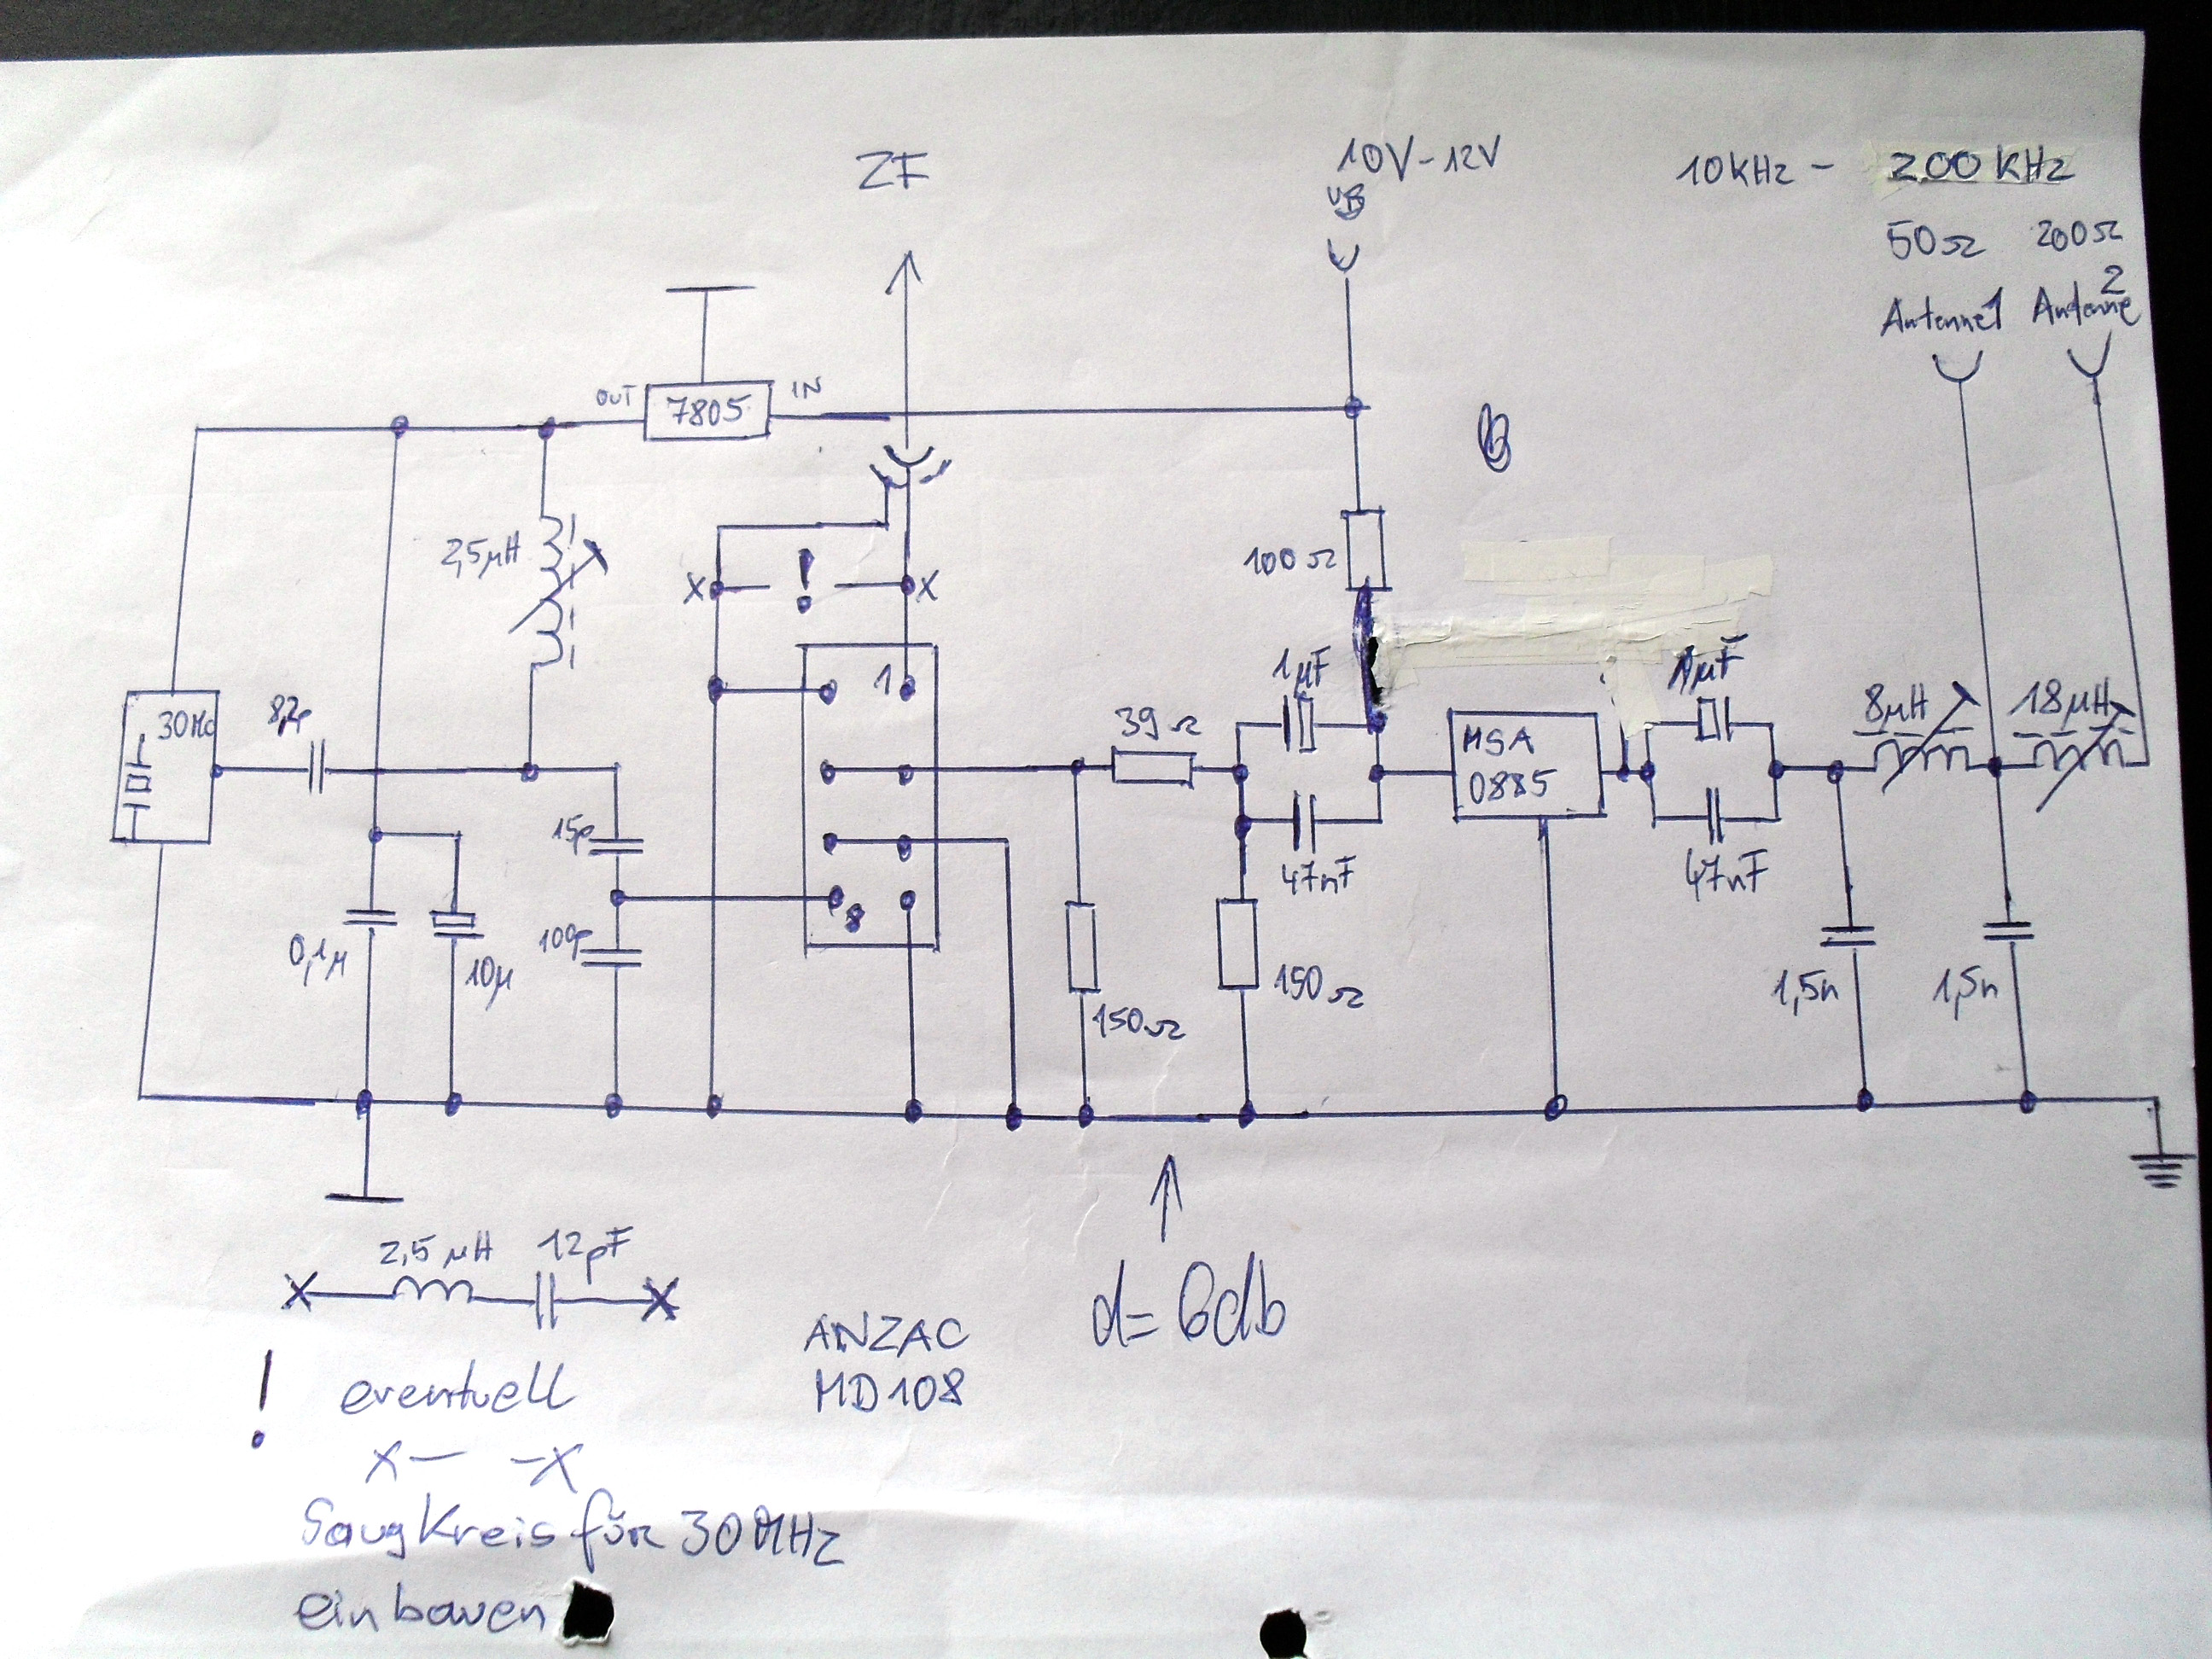 ZF
10V-12V
UB
10KHz - 200 KHz
50Ω 200Ω
Antenne1 Antenne 2
OUT 7805 IN
2,5µH
!
X X
100Ω
30Mc
8,2p
1
39Ω
1µF
MSA
0885
1µF
8µH
18µH
15p
47nF
47nF
8
0,1µ
10µ
100p
150Ω
150Ω
1,5n
1,5n
2,5 µH 12pF
X X
d= 6db
ANZAC
MD108
! eventuell
X— —X
Saugkreis für 30MHz
einbauen